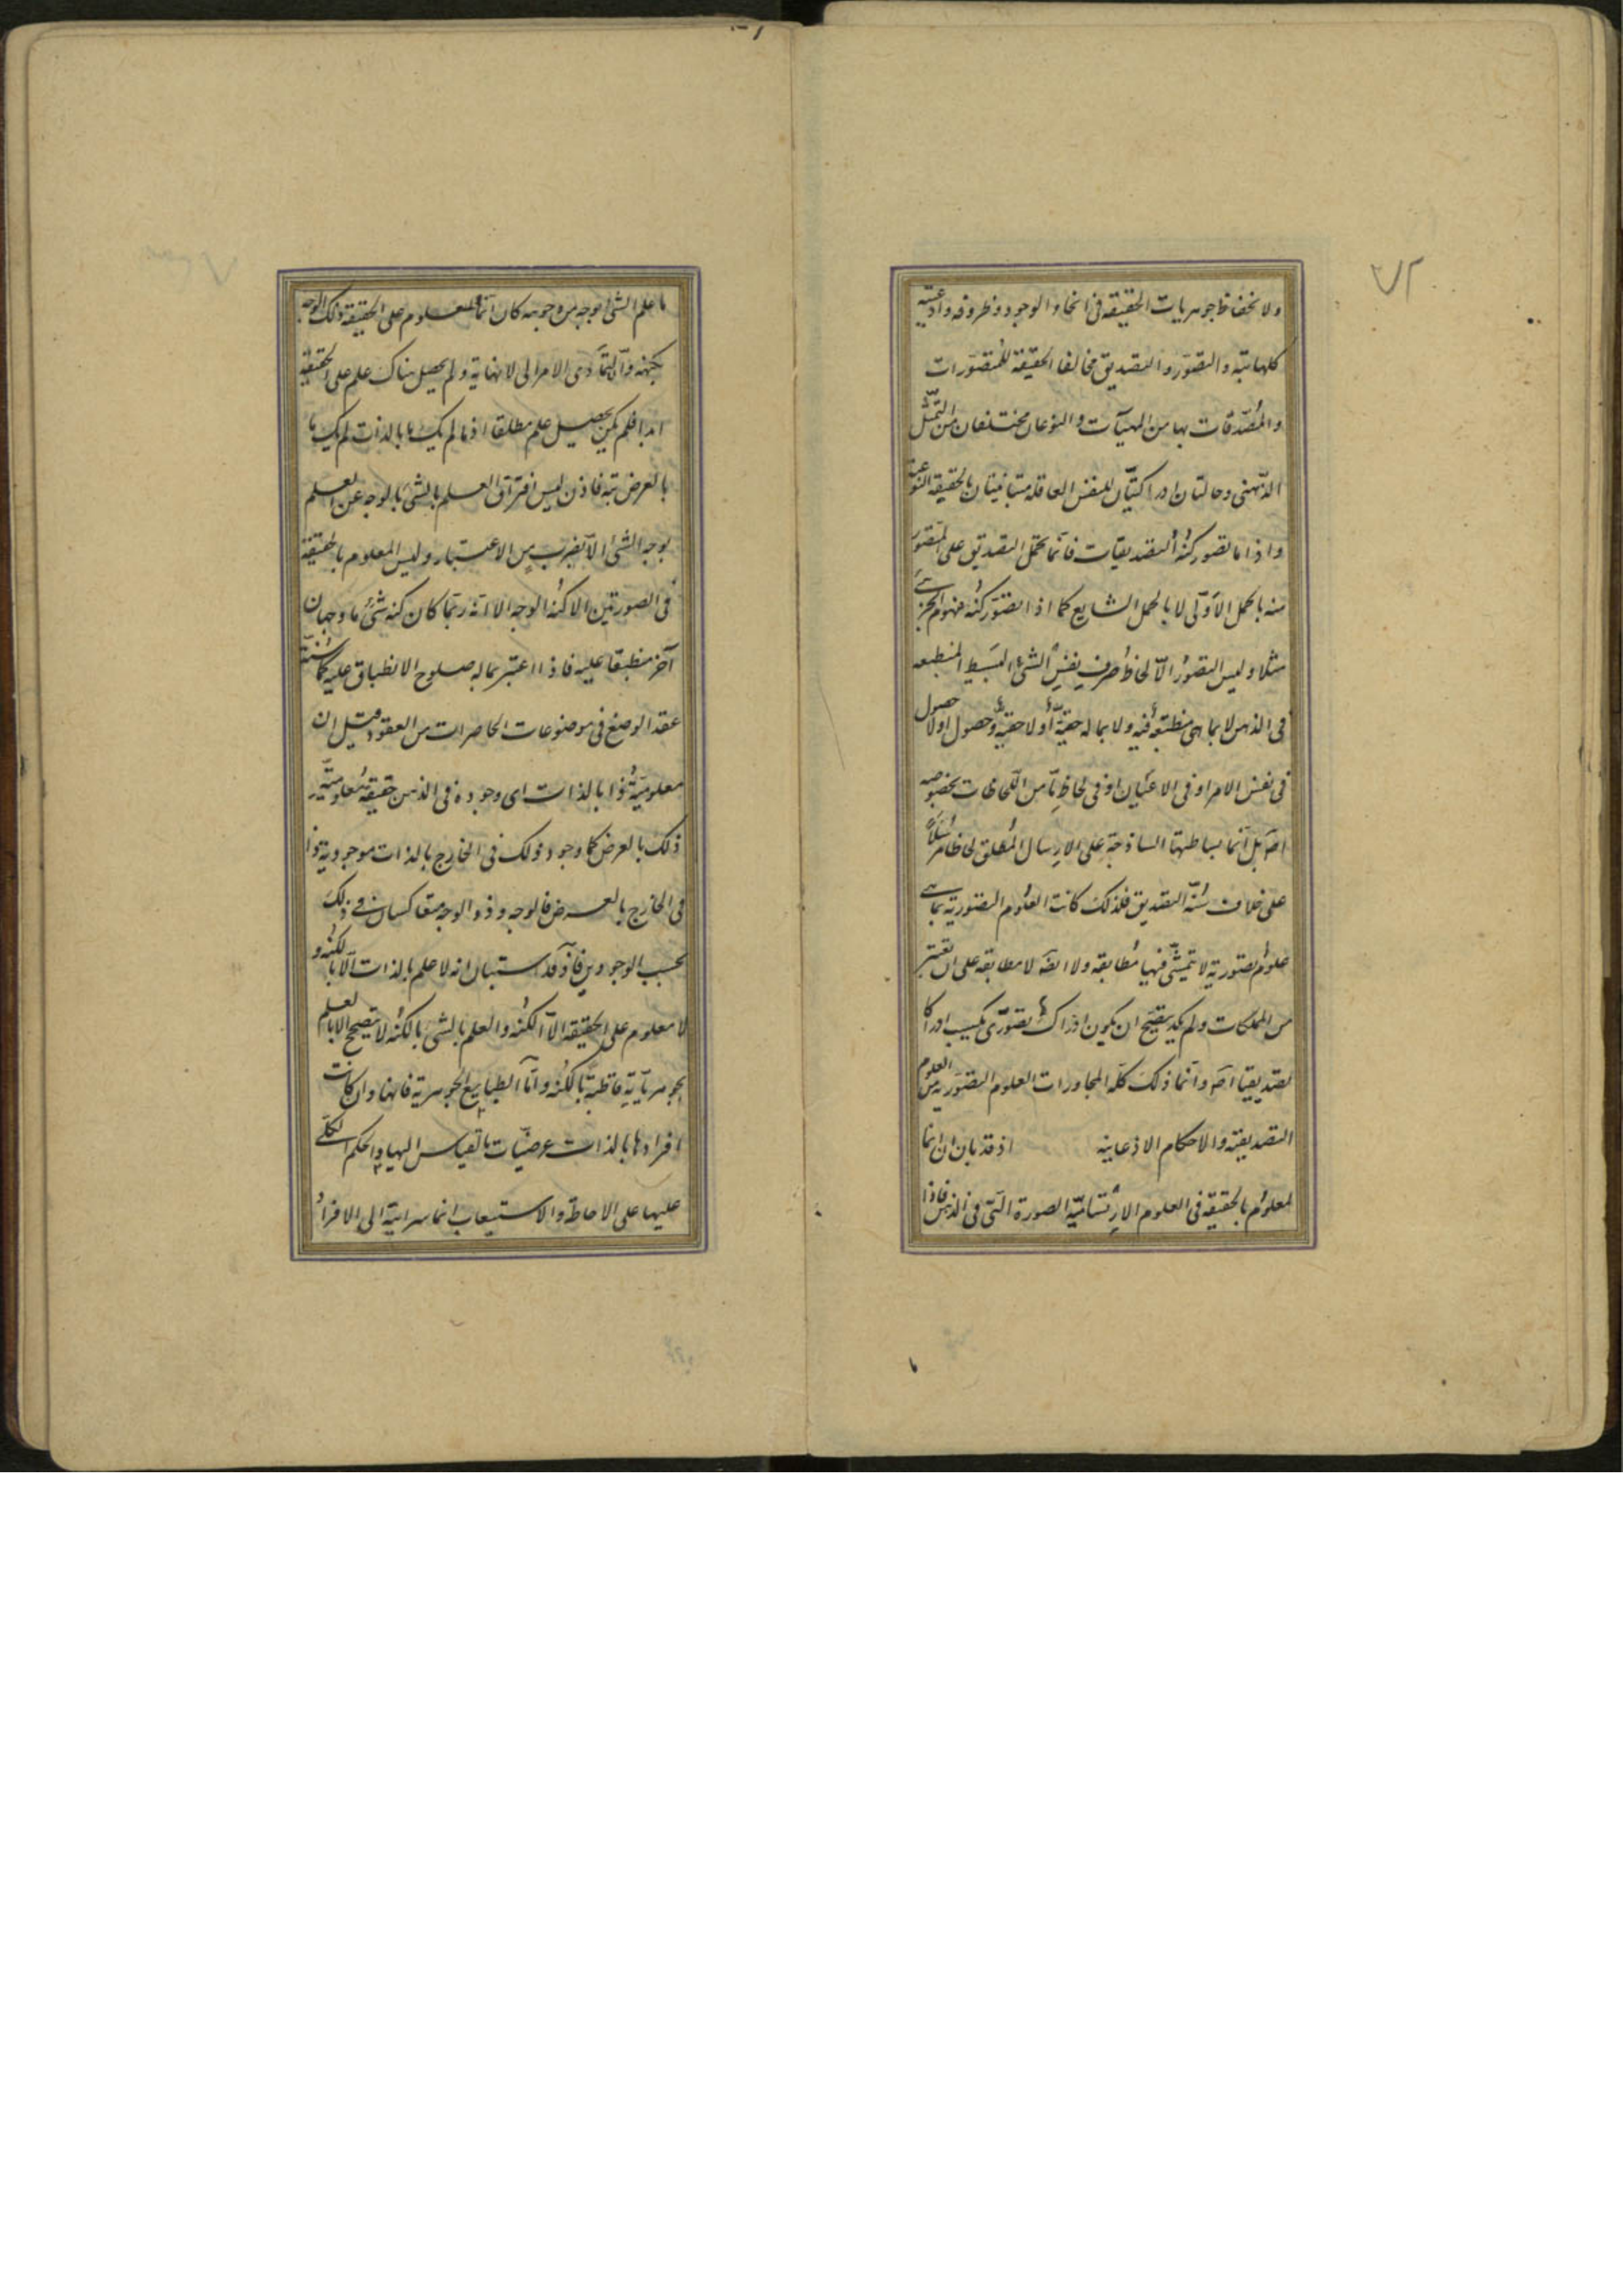 ٧٢
ولانحفاظ جوهريات الحقيقة في انحاء الوجود وظروفه واوعيته
كلها بتة والتصور والتصديق مخالفا الحقيقة للمتصورات
والمُصدّقات بها من المهيّات والنوعان مختلفان من التمثّل
الذّهني وحالتان ادراكيتّان للنفس العاقله متباينتان بالحقيقة النوعية
واذا ما تصور كنهُ التصديقات فانّما يحمل التصديق على المتصوّر
منه بالحمل الاوّلى لا بالحمل الشايع كما اذا تصوّر كنه مفهوم الجزئے
مثلا وليس التصوُر الّا لحاظُ صرفِ نفسِ الشئ البَسيط المنطبعه
في الذهن لا بما هى منطبعة فيه ولا بما له حقيّة أو لا حقيّة وحصول او لا حصول
في نفس الامر او في الاعيان او في لحاظ مّا من اللّحاظات بخصوصه
اصَ بل انّما بساطتها الساذجة على الارسال المُطلق لحاظا مرسلاً
على خلاف سُنّة التصديق فلذلك كانت العلوم التصوريّه بماهى
علومٌ تصوريّة لا تتمشّى فيها مُطابقه ولا ايضَه لا مطابقه على ان تعتبر
من الملكات ولم يكد يصَّح ان يكون ادراك تصوّرى يكسب ادراكا
تصديقيا اصَ وانّما ذلك كلّه لمجاورات العلوم التصوَريه من العلوم
التصديقيّه والاحكام الاذعانيه اذ قد بان ان انّما
لمعلوُم بالحقيقة في العلوم الارتساميّه الصورة الّتى في الذهن فاذا
ما علم الشئ بوجهٍ من وجوهه كان انّما المعلوم على الحقيقة ذلك الوجه
بكنهه والّا لتمادى الامر الى لا نهاية ولم يحصل هناك علم على الحقيقة
ابدا فلم يكن يحصل علم مطلقا اذ ما لم يك ما بالذات لم يك ما
بالعرض بتة فاذن ليس افتراق العلم بالشئ بالوجه عن العلم
بوجه الشئ الّا بضربٍ من الاعتبار وليس المعلوم بالحقيقة
في الصورتين الا كُنهُ الوجه الا انه ربّما كان كنه شئ ما وجهان
آخر منطبقا عليه فاذا اعتبر بما له صلوح الانطباق عليه كما سُنّة
عقد الوضع في موضوعات الحاصرات من العقود قيل ان
معلوميّة ذا بالذات اى وجوده في الذهن حقيقة معلوميّة
ذلك بالعرض كما وجود ذلك في الخارج بالذات موجودية ذا
في الخارج بالعرض فالوجه وذو الوجه متعاكسان في ذلك
بحسب الوجودين فاذَ قد استبان انه لا علم بالذات الّا بالكُنه و
لا معلوم على الحقيقة الّا الكُنه والعلم بالشئ بالكُنه لا يتصحح الا بالعلم
بجوهريّاته قاطبة بالكُنه وامّا الطبايع الجوهرية فانها وان كانت
افرادها بالذات عرضيّات بالقياس اليها والحكم الكلّى
عليها على الاحاطة والاستيعاب انما سرايته الى الافراد